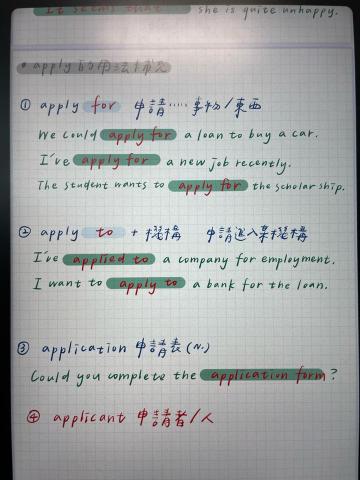 It seems that she is quite unhappy.
• apply的用法補充
① apply for 申請.....事物/東西
We could apply for a loan to buy a car.
I've apply for a new job recently.
The student wants to apply for the scholarship.
② apply to + 機構 申請進入某機構
I've applied to a company for employment.
I want to apply to a bank for the loan.
③ application 申請表 (n.)
Could you complete the application form?
④ applicant 申請者/人